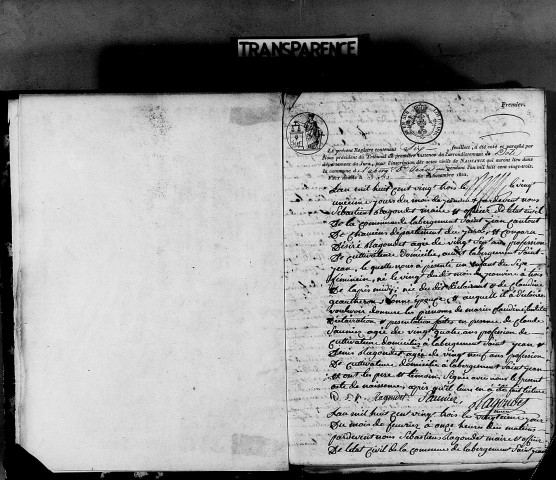 TRANSPARENCE
Premier.
Le présent Registre contenant Six feuillets, a été coté et paraphé par
Nous président du Tribunal de première instance de l'arrondissement de Dole
département du Jura, pour l'inscription des actes civils de NAISSANCE qui auront lieu dans
la commune de pendant l'an mil huit cent vingt-trois.
Fait double à Dole novembre 1822.
L'an mil huit cent vingt trois le vingt
unième jours du mois de pardevant nous
Sébastien Lagondet maire et officier de l'état civil
De la commune de labergement Saint jean canton
De chaussin département du jura, est comparu
Désiré Lagondet agée de vingt profession
De cultivateur domicilié audit labergement Saint
jean, le quelle nous a présenté un enfant du Sexe
féminin, né le vingt du dit mois à trois
De laprès midi, née du dit Déclarant et de claudine
Son épouse, et auquel il a déclaré
vouloir donner les prénoms de marie claudine
Déclaration et présentation faites en présence de claude
Saunier agée de vingt quatre ans profession de
cultivateur domicilié à labergement Saint jean et
Denis Lagondet agée de vingt neuf ans profession
De cultivateur domicilié à labergement Saint jean
et ont les père et témoins Signée avec nous le présent
acte de naissance, après qu'il leur en a été fait lecture
D. L. Lagondet Saunier Lagondet
maire
L'an mil huit cent vingt trois le jour
Du mois de feuvrier à onze heures du matin
pardevent nous Sébastien Lagondet maire et officier
De l'état civil de la commune de labergement Saint jean